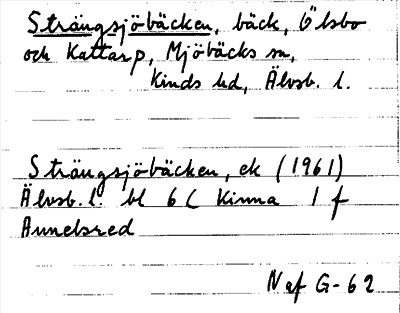 Strängsjöbäcken, bäck, Ölsbo
och Kattarp, Mjöbäcks sn,
Kinds hd, Älvsb. l.
Strängsjöbäcken, ek (1961)
Älvsb. l. bl 6 C Kinna 1 f
Annelsred
Naf G-62